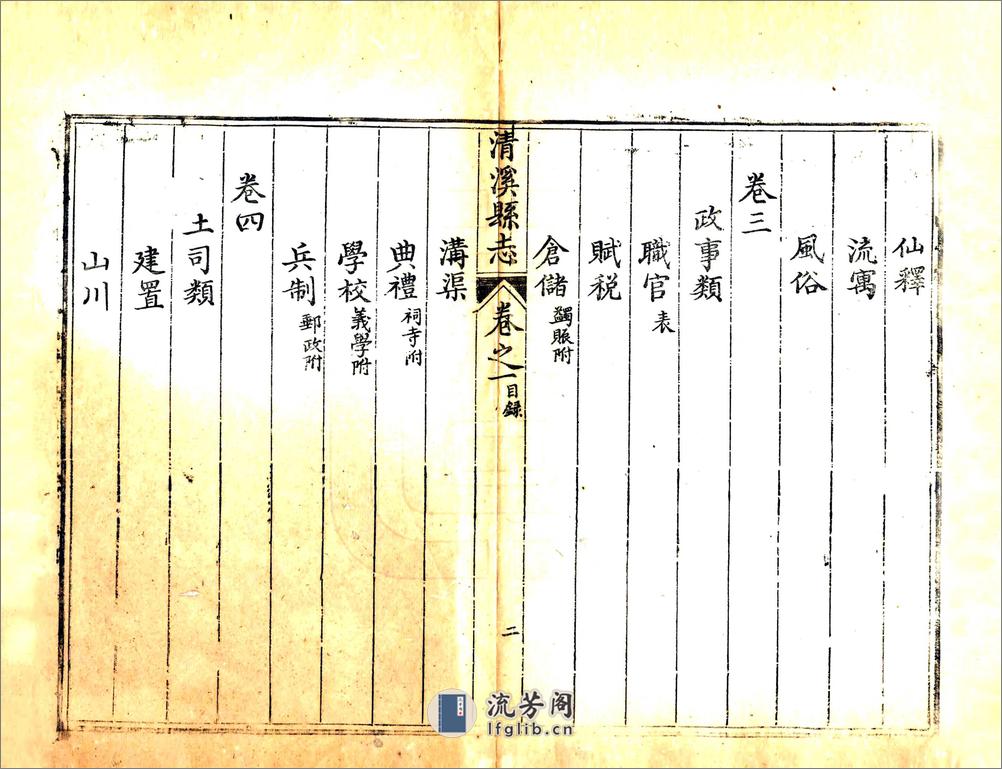 仙釋
流寓
風俗
卷三
政事類
職官表
賦税
倉儲蠲賑附
清溪縣志 卷之一目錄 二
溝渠
典禮祠寺附
學校義學附
兵制郵政附
卷四
土司類
建置
山川
流芳阁
lfglib.cn